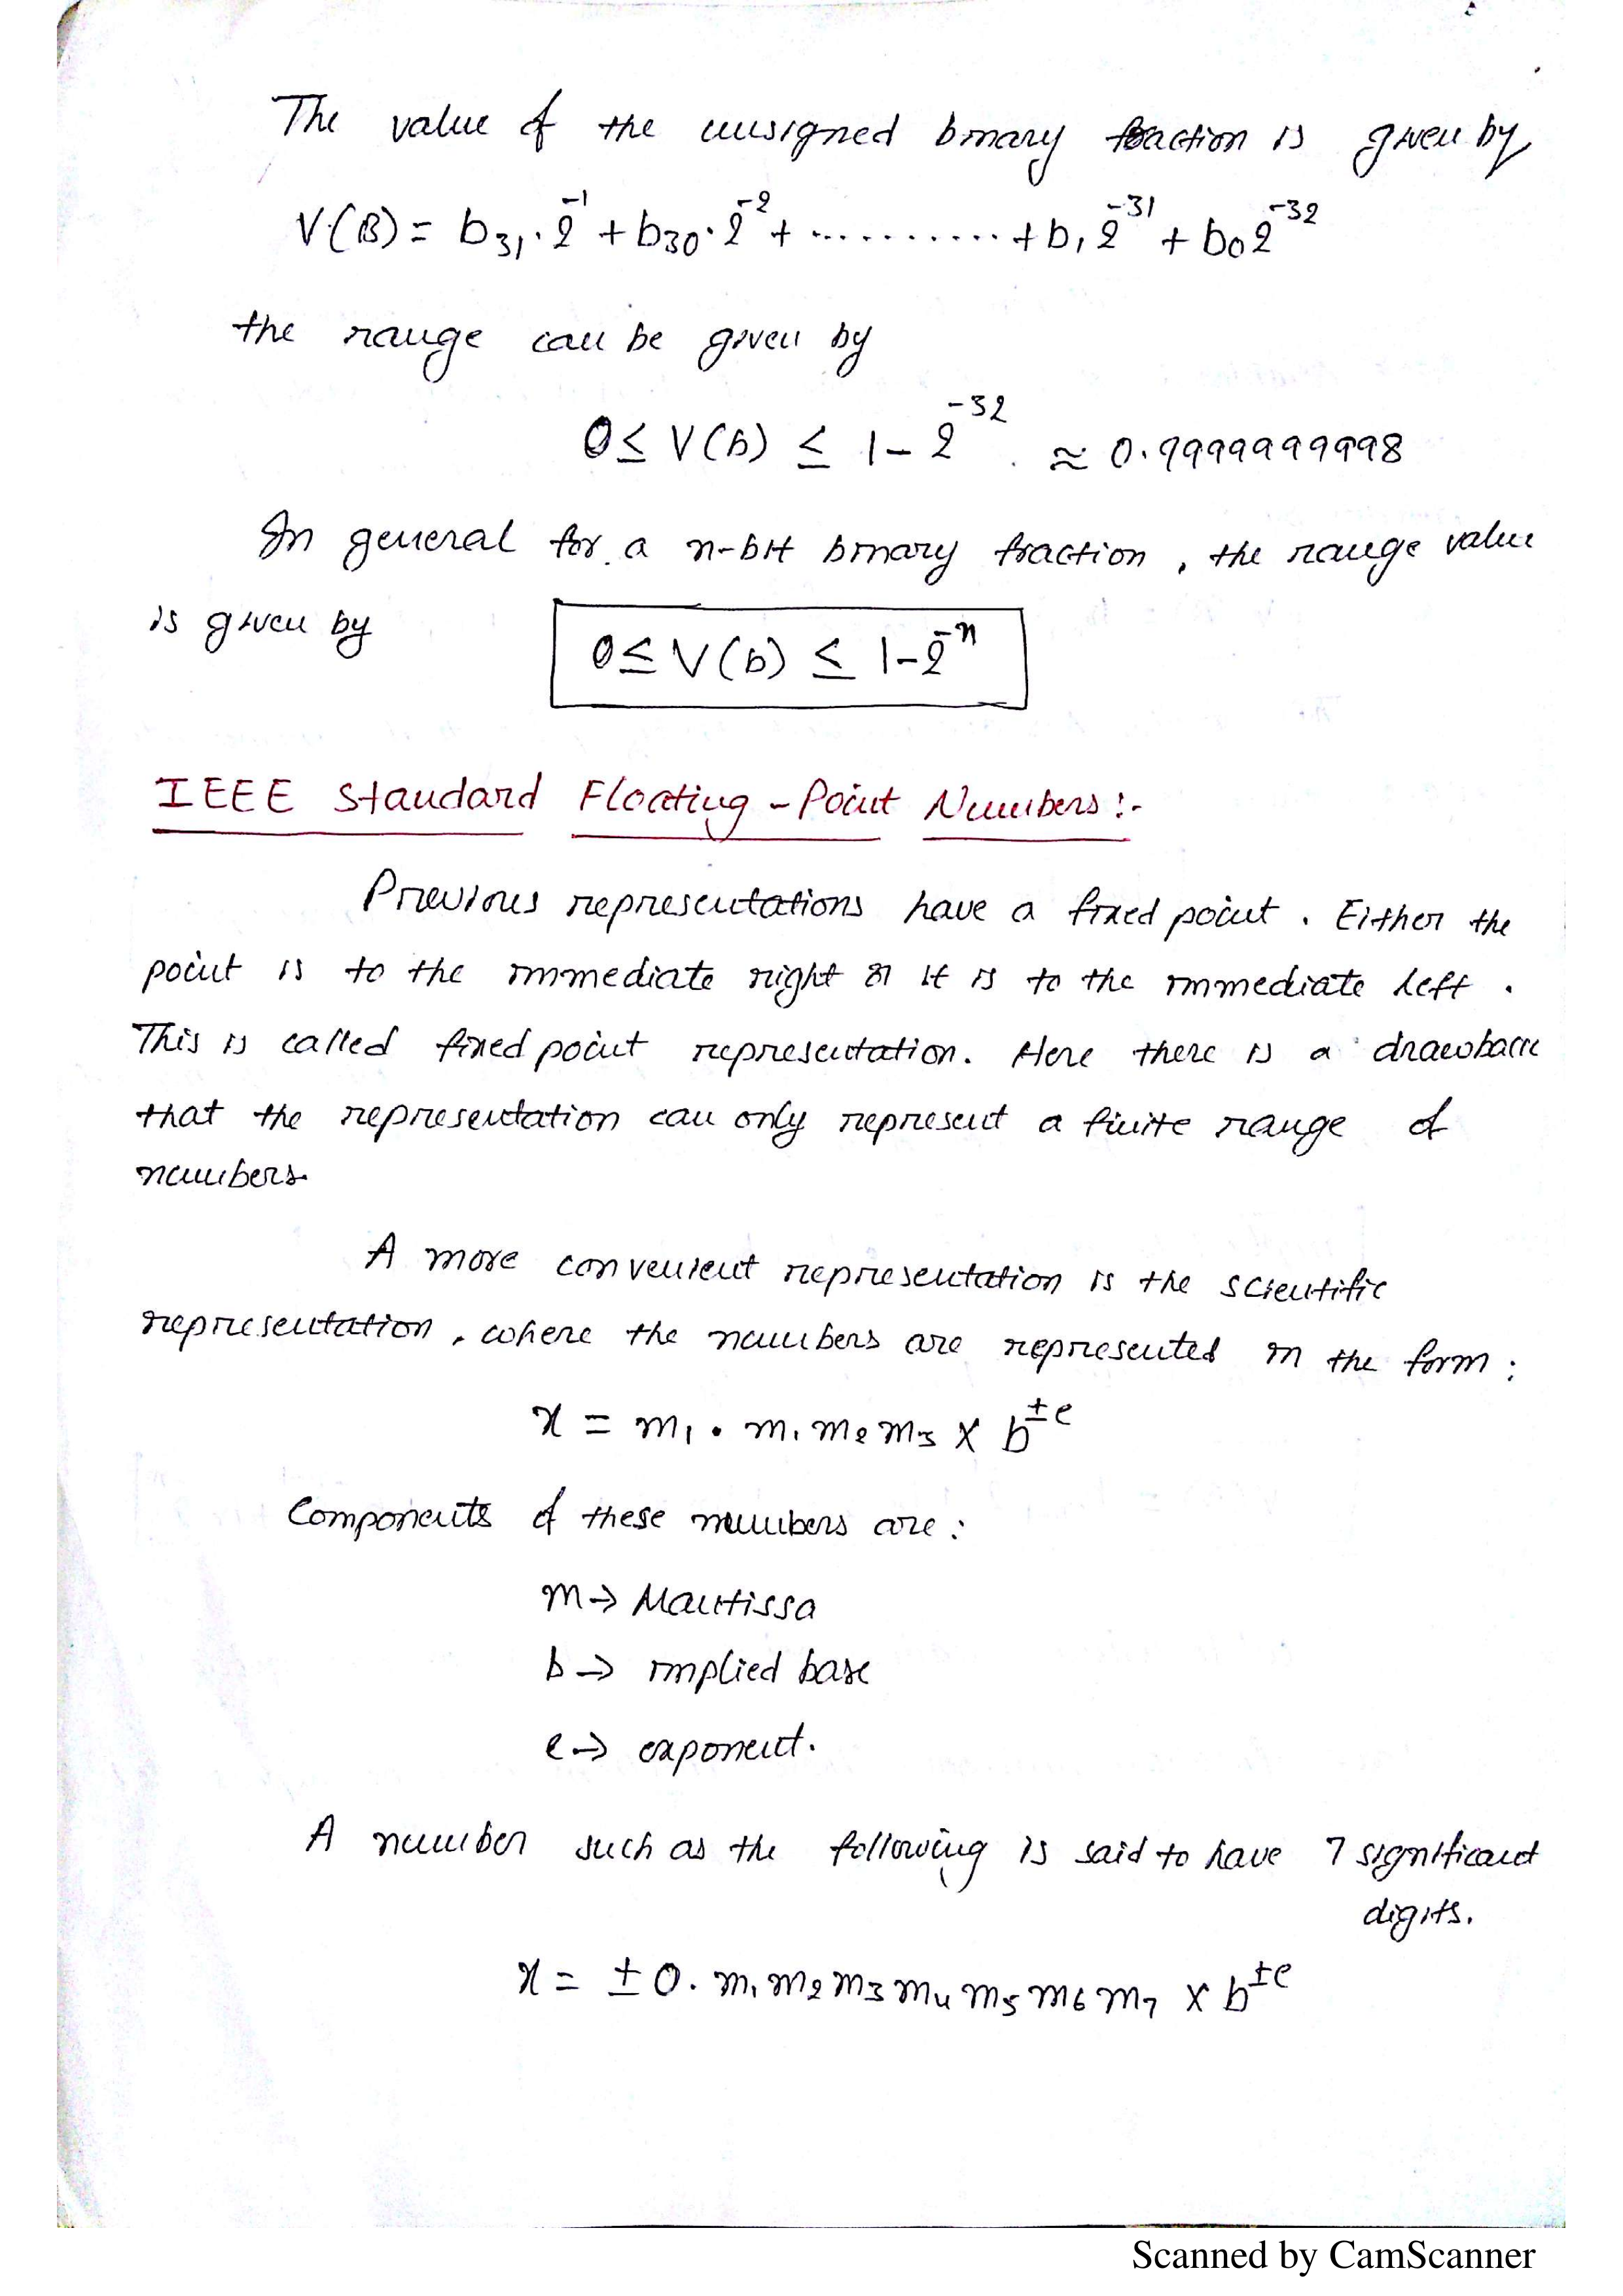 The value of the unsigned binary fraction is given by
V(B) = b31·2^-1 + b30·2^-2 + ............ + b1 2^-31 + b0 2^-32
the range can be given by
0 ≤ V(b) ≤ 1 - 2^-32 . ≈ 0.9999999998
In general for a n-bit binary fraction, the range value
is given by 0 ≤ V(b) ≤ 1 - 2^-n
IEEE Standard Floating - Point Numbers :-
Previous representations have a fixed point. Either the
point is to the immediate right or it is to the immediate left.
This is called fixed point representation. Here there is a drawback
that the representation can only represent a finite range of
numbers.
A more convenient representation is the scientific
representation, where the numbers are represented in the form :
x = m1 . m1 m2 m3 × b^±e
Components of these numbers are :
m → Mantissa
b → implied base
e → exponent.
A number such as the following is said to have 7 significant
digits.
x = ± 0. m1 m2 m3 m4 m5 m6 m7 × b^±e
Scanned by CamScanner